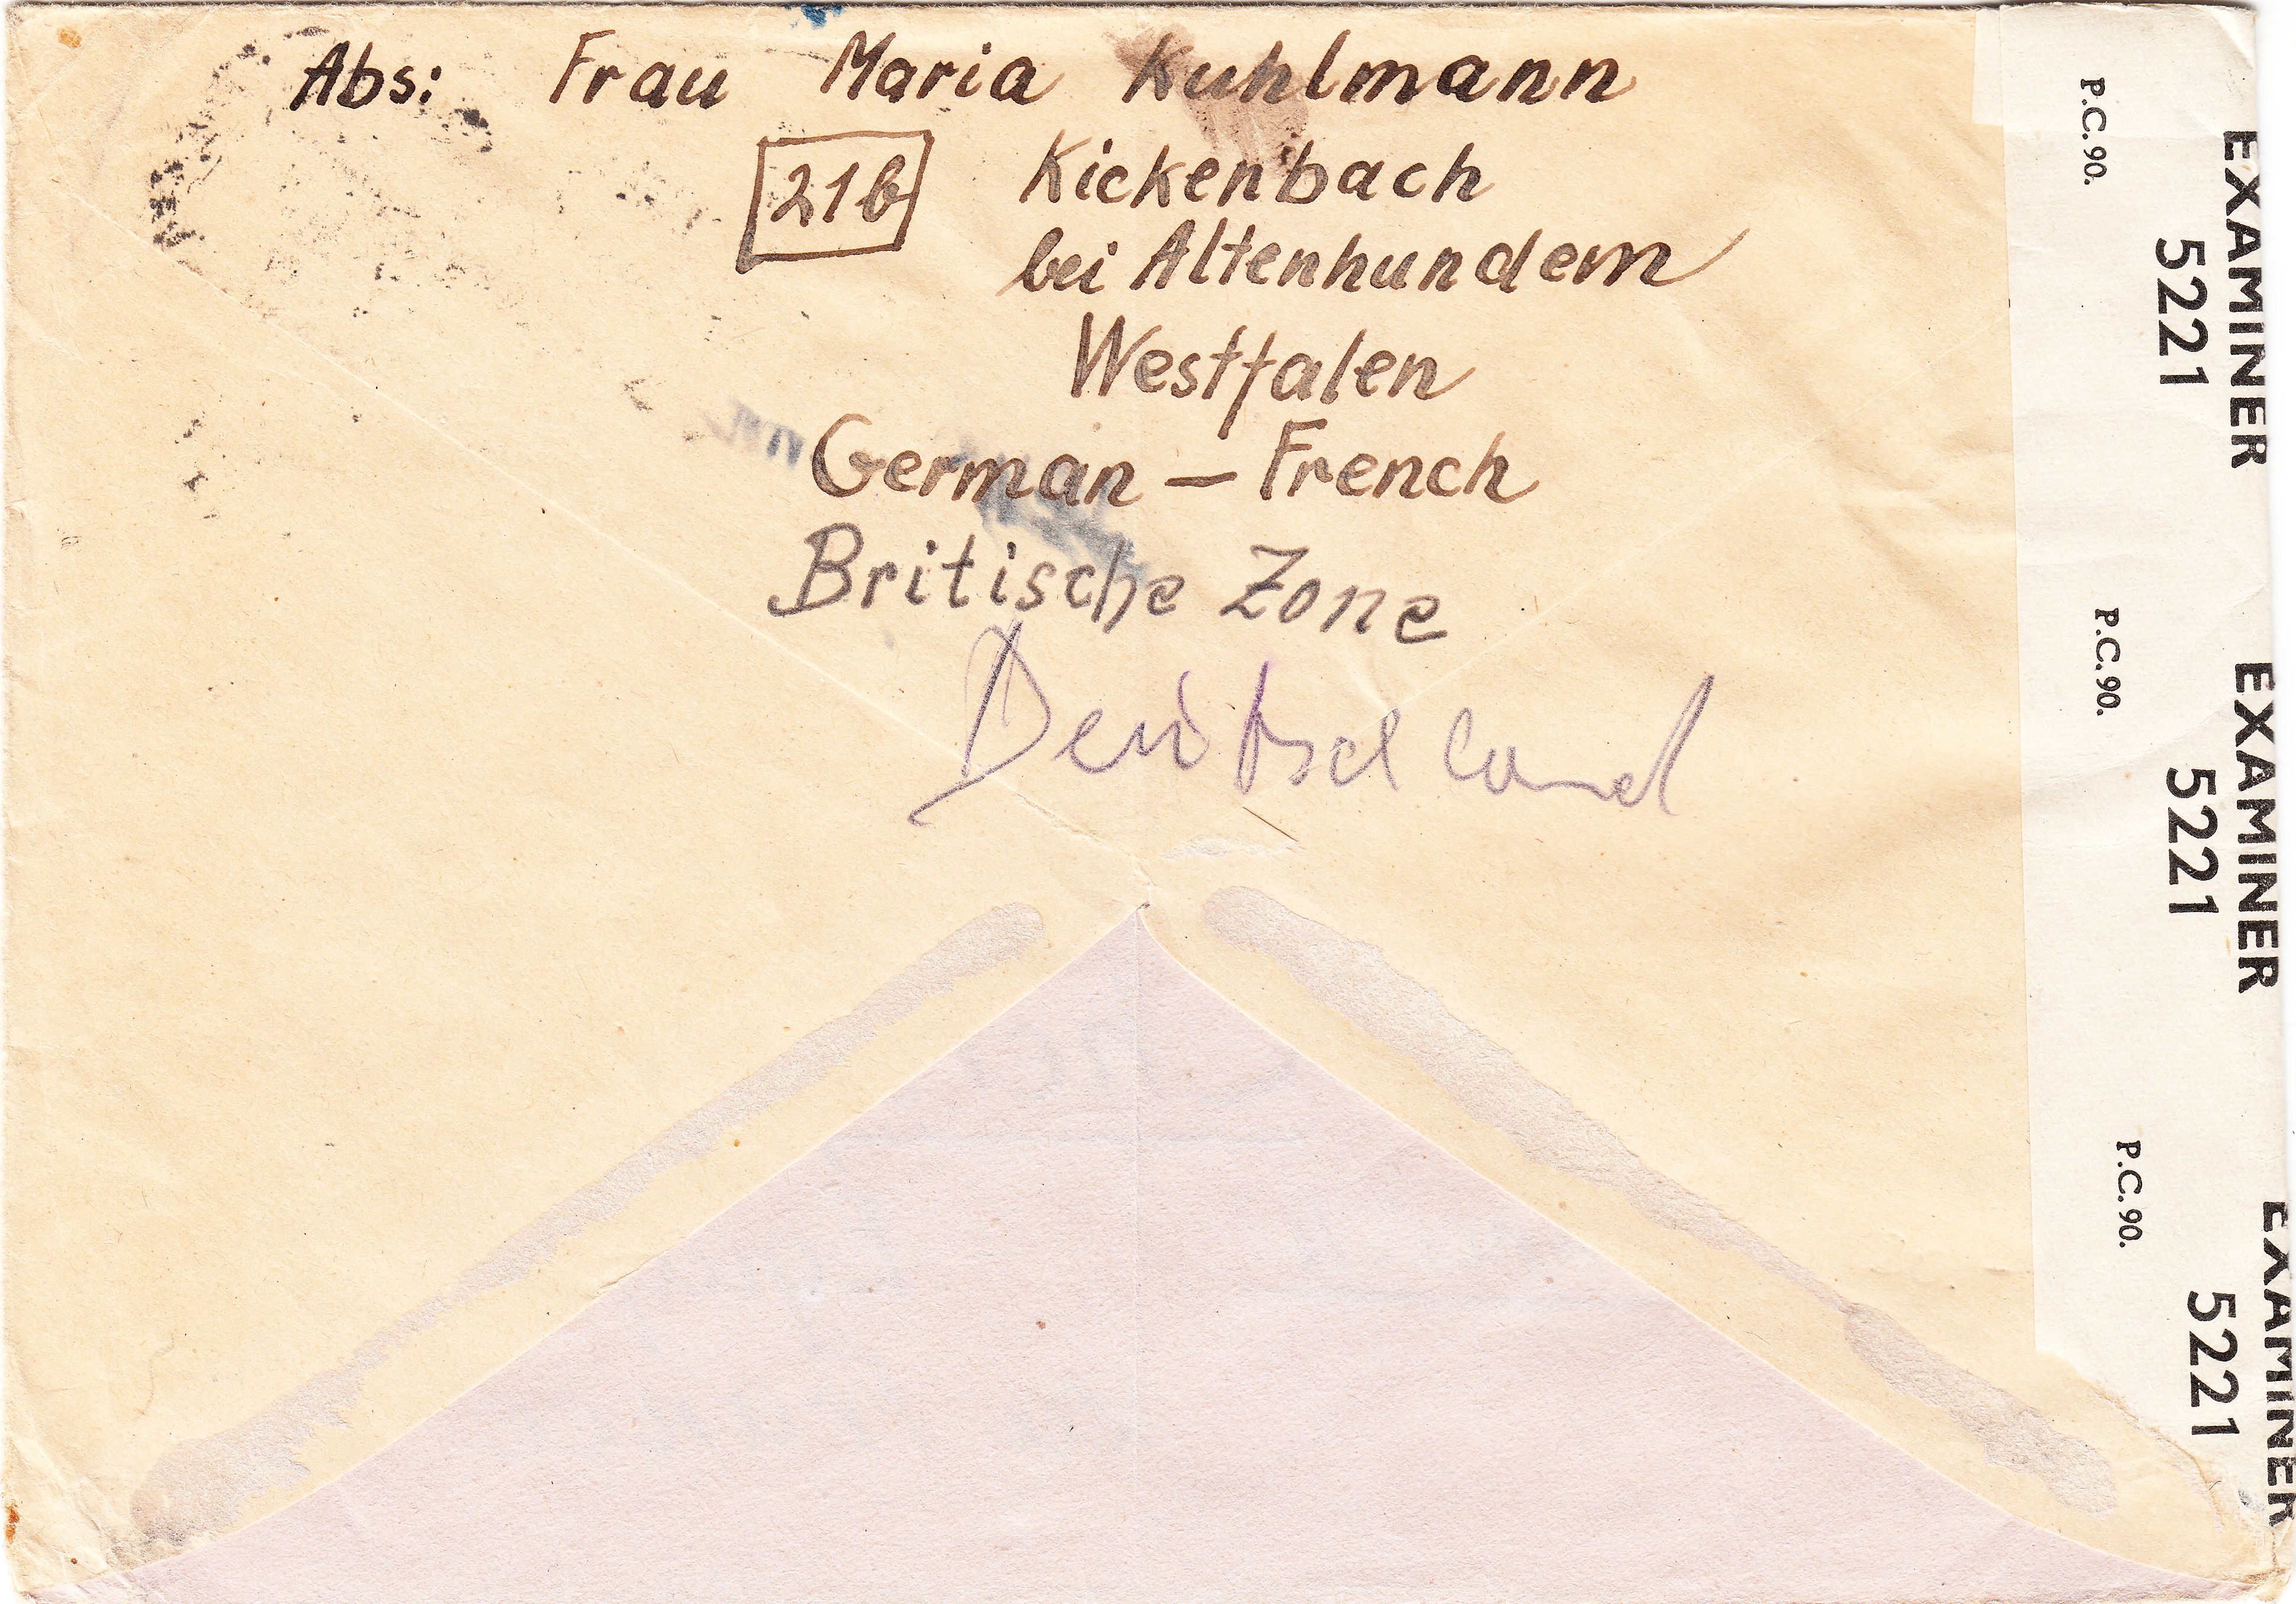 Abs: Frau Maria Kuhlmann
21b Kickenbach
bei Altenhundem
Westfalen
German – French
Britische Zone
Deutschland
P.C.90.
EXAMINER
5221
P.C.90.
EXAMINER
5221
P.C.90.
EXAMINER
5221